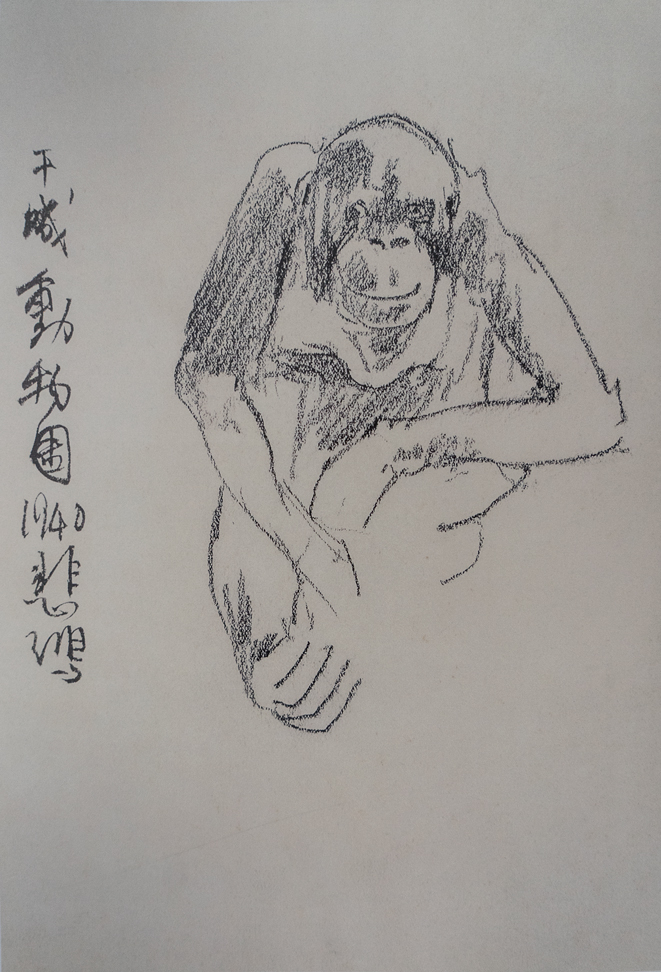 干城動物園1940悲鴻